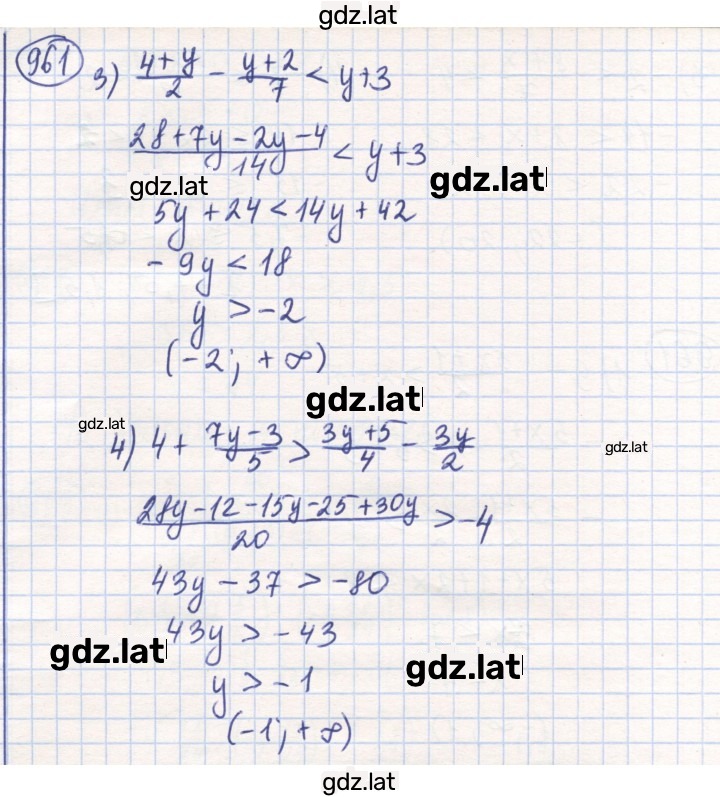 gdz.lat
961
3) (4+y)/2 - (y+2)/7 < y+3
(28+7y-2y-4)/14 < y+3
gdz.lat gdz.lat
5y+24<14y+42
-9y<18
y>-2
(-2; +∞)
gdz.lat
gdz.lat
4) 4+ (7y-3)/5 > (3y+5)/4 - 3y/2
gdz.lat
(28y-12-15y-25+30y)/20 > -4
43y-37>-80
43y>-43
gdz.lat
y>-1
gdz.lat
(-1; +∞)
gdz.lat